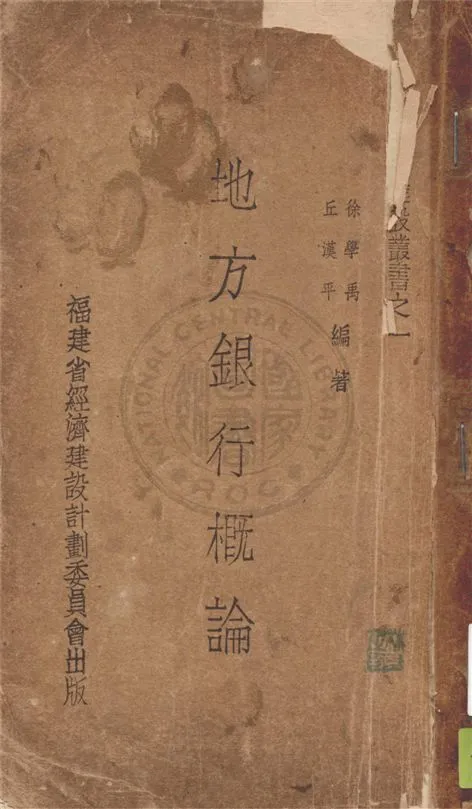 設叢書之一
徐學禹
丘漢平
編著
地方銀行概論
福建省經濟建設計劃委員會出版
NATIONAL CENTRAL LIBRARY
ROC
國家